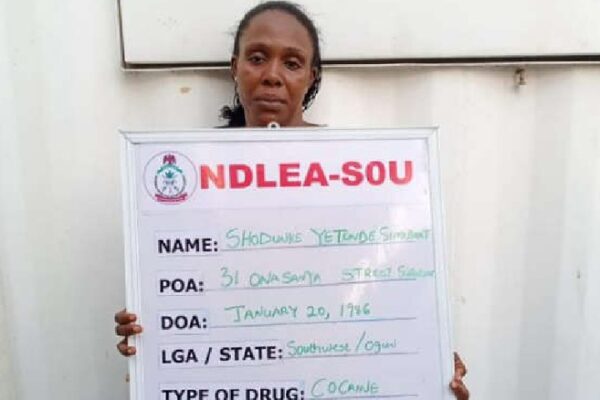 NDLEA-SOU
NAME: SHODUNKE YETUNDE
POA: 31 ONASANYA STREET
DOA: JANUARY 20, 1986
LGA / STATE: Southwest/Ogun
TYPE OF DRUG: COCAINE